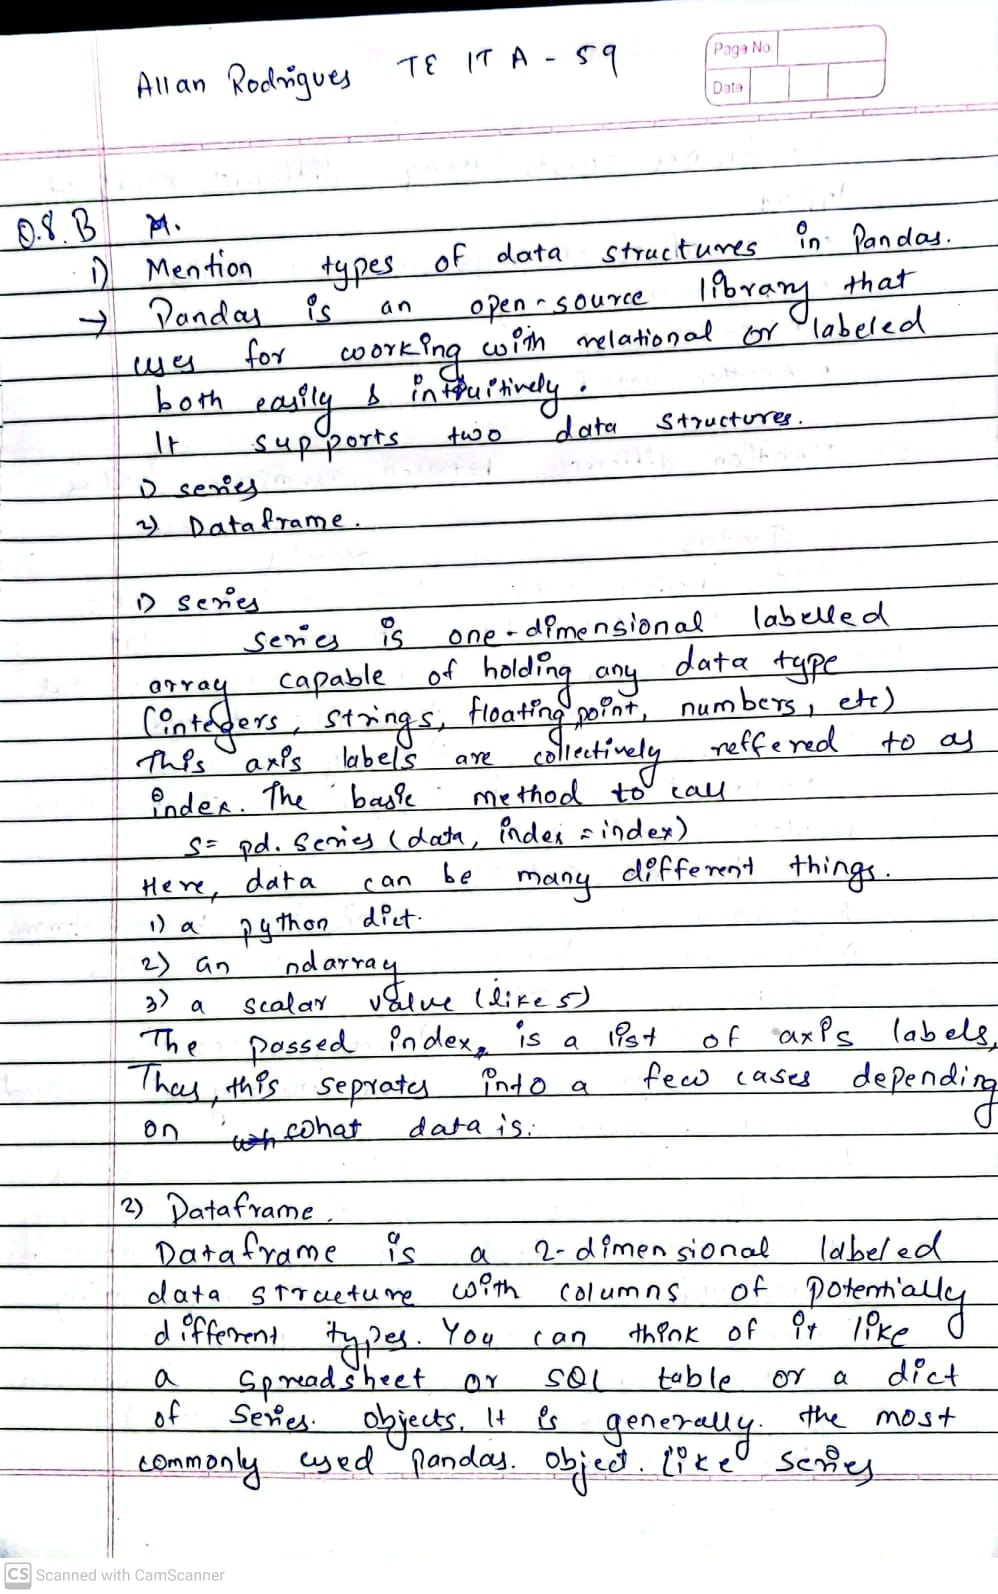 Allan Rodrigues TE IT A - 59
Page No.
Date
Q.8. B
i) Mention types of data structures in Pandas.
→ Pandas is an open-source library that
uses for working with relational or labeled
both easily & intuitively.
It supports two data structures.
1) series
2) Dataframe.
1) series
series is one-dimensional labelled
array capable of holding any data type
(integers, strings, floating point, numbers, etc)
This axis labels are collectively reffered to as
index. The basic method to call
s= pd. Series (data, index = index)
Here, data can be many different things.
1) a python dict.
2) an ndarray
3) a scalar value (like 5)
The passed index, is a list of axis labels,
Thus, this seprates into a few cases depending
on what data is:
2) Dataframe.
Dataframe is a 2-dimensional labeled
data structure with columns of potentially
different types. You can think of it like
a spreadsheet or SQL table or a dict
of Series. objects. It is generally. the most
commonly used pandas. object. like series
CS Scanned with CamScanner